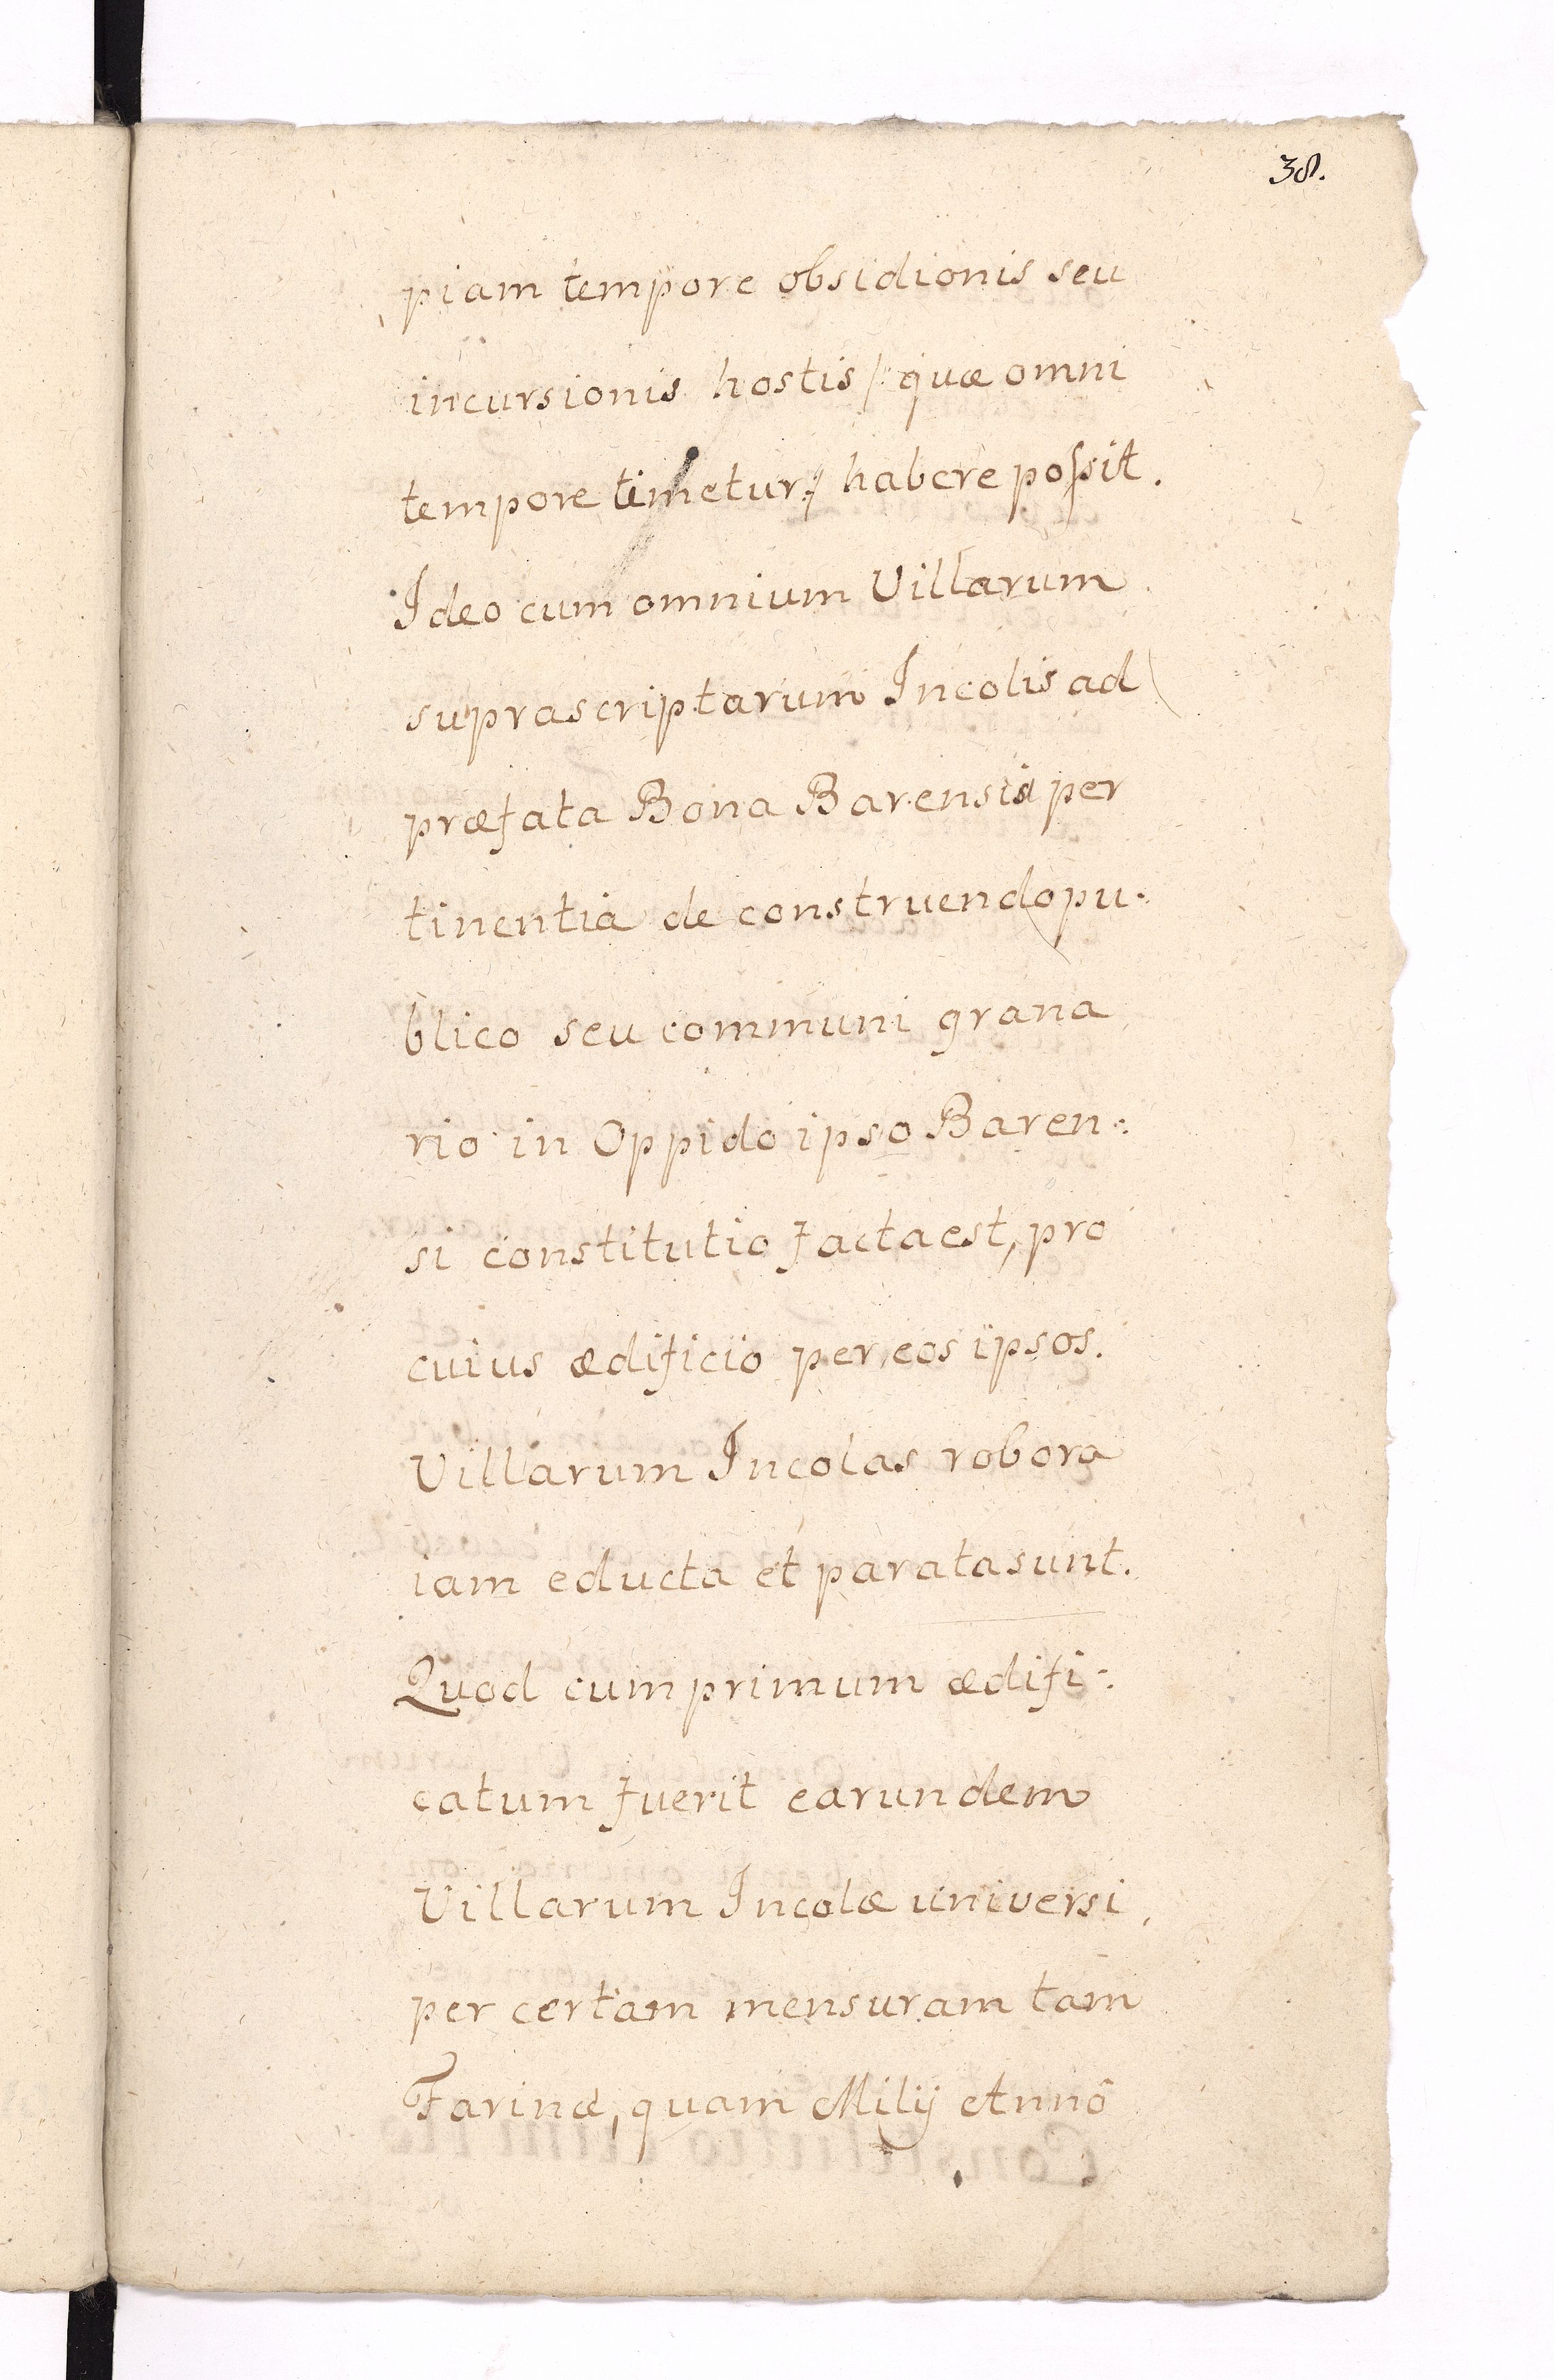 38.
piam tempore obsidionis seu
incursionis hostis /: quæ omni
tempore timetur :/ habere possit.
Ideo cum omnium Villarum
suprascriptarum Incolis ad
præfata Bona Barensia per
tinentia de construendo pu:
blico seu communi grana
rio in Oppido ipso Baren:
si constitutio facta est, pro
cuius ædificio per eos ipsos.
Villarum Incolas robora
iam educta et parata sunt.
Quod cum primum ædifi:
catum fuerit earundem
Villarum Incolæ universi,
per certam mensuram tam
Farinæ, quam Milij